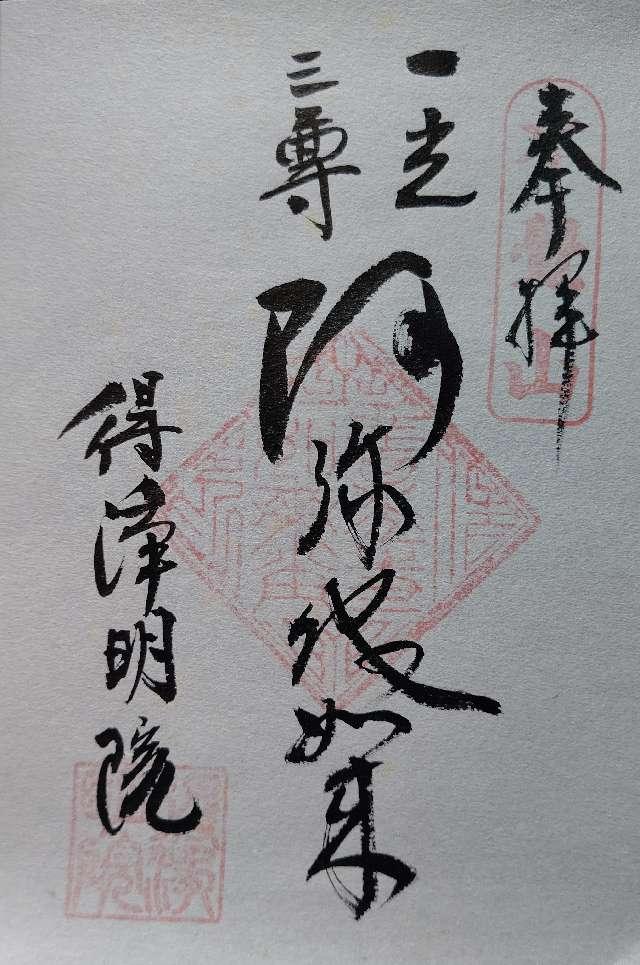 奉拝
一光
三尊
阿弥陀如来
得浄明院